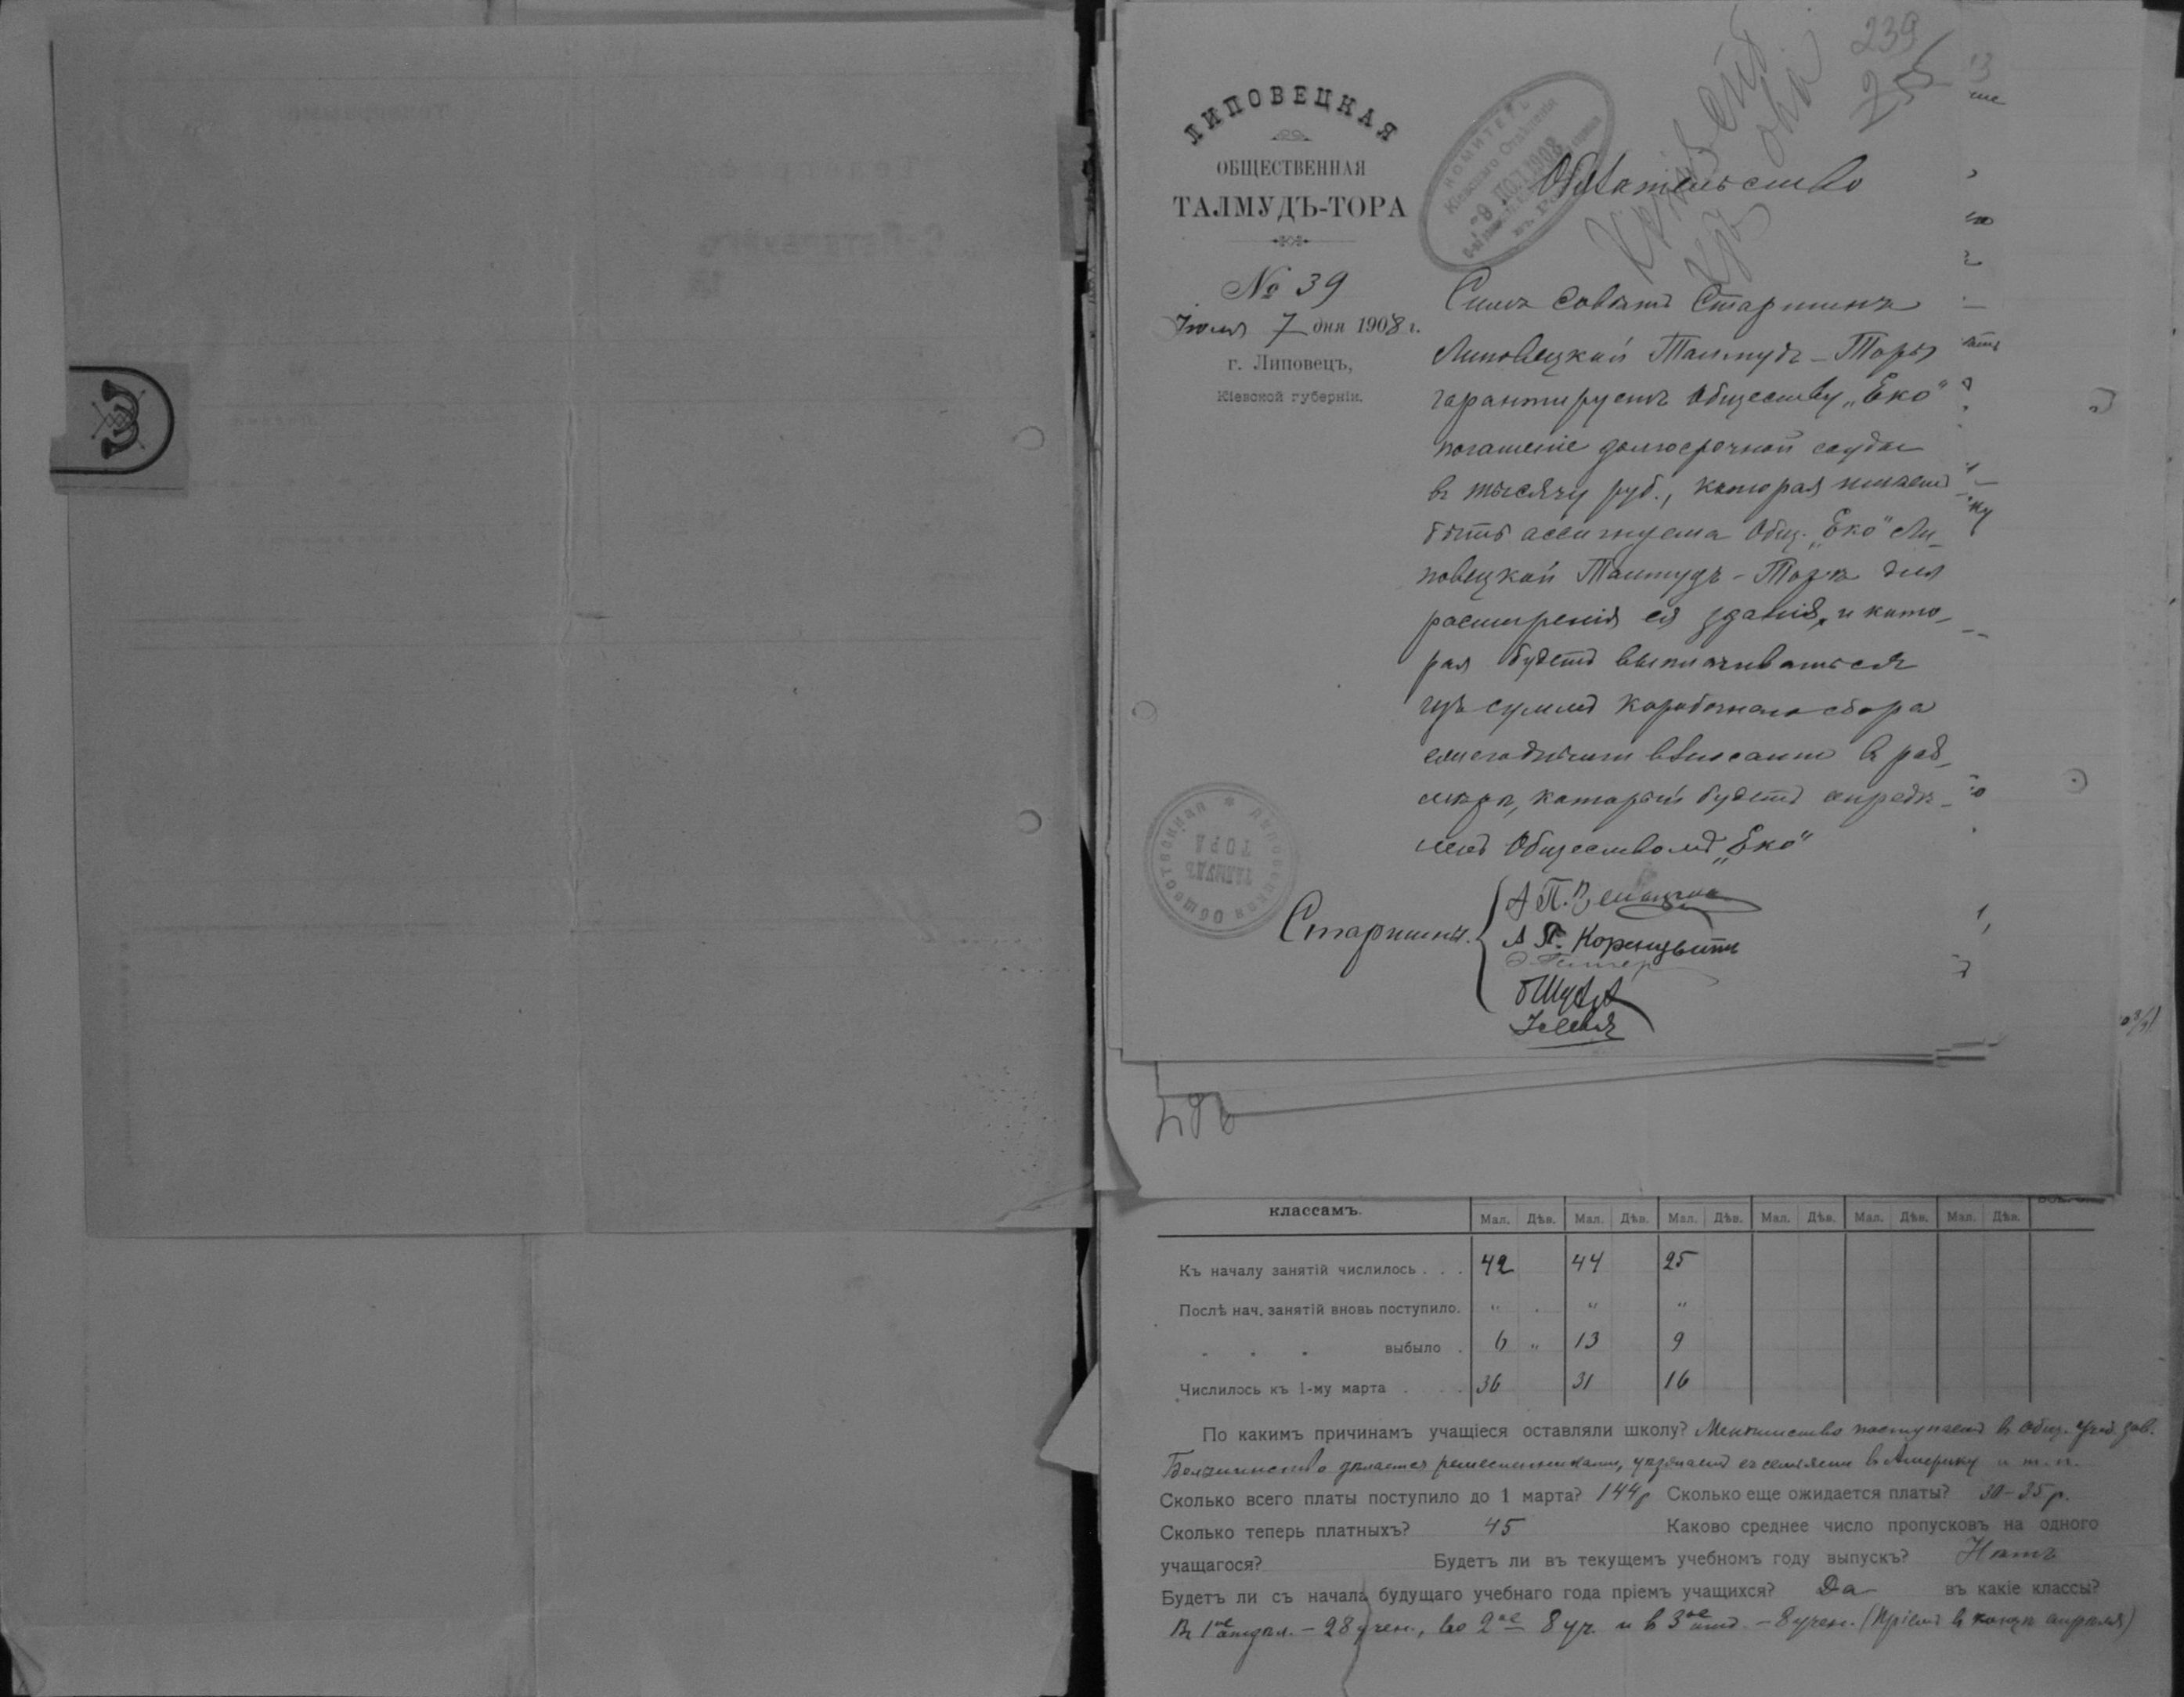 ЛИПОВЕЦКАЯ
ОБЩЕСТВЕННАЯ
ТАЛМУДЪ-ТОРА
№ 39
Іюля 7 дня 1908 г.
г. Липовецъ,
Кіевской губерніи.
239
25
КОМИТЕТЪ
Кіевскаго Отдѣленія
9 ІЮЛ 1908
Обязательство
Симъ Совѣтъ Старшинъ
Липовецкой Талмудъ-Торы
гарантируетъ Обществу „Еко"
погашеніе долгосрочной ссуды
въ тысячу руб., которая имѣетъ
быть ассигнуема Общ. „Еко" Ли-
повецкой Талмудъ-Торѣ для
расширенія ея зданія, и кото-
рая будетъ выплачиваться
изъ суммъ коробочнаго сбора
ежегодными взносами въ раз-
мѣрѣ, который будетъ опредѣ-
ленъ Обществомъ „Еко"
Липовецкая Общественная
ТАЛМУДЪ
ТОРА
Старшины:
А П.
А П. Коренцвитъ
классамъ.
Мал. Дѣв. Мал. Дѣв. Мал. Дѣв. Мал. Дѣв. Мал. Дѣв. Мал. Дѣв.
Къ началу занятій числилось . . . 42 44 25
Послѣ нач. занятій вновь поступило. " " "
" " " выбыло . 6 " 13 9
Числилось къ 1-му марта . . . 36 31 16
По какимъ причинамъ учащіеся оставляли школу? Меньшинство поступаетъ въ общ. учеб. зав.
Большинство дѣлается ремесленниками, уѣзжаетъ съ семьями въ Америку и т. п.
Сколько всего платы поступило до 1 марта? 144 р Сколько еще ожидается платы? 30-35 р.
Сколько теперь платныхъ? 45 Каково среднее число пропусковъ на одного
учащагося? Будетъ ли въ текущемъ учебномъ году выпускъ? Нѣтъ
Будетъ ли съ начала будущаго учебнаго года пріемъ учащихся? Да въ какіе классы?
Въ 1ое отдѣл. - 28 учен., во 2ое 8 уч. и в 3ье отд. - 8 учен. (Пріемъ въ концѣ апрѣля)